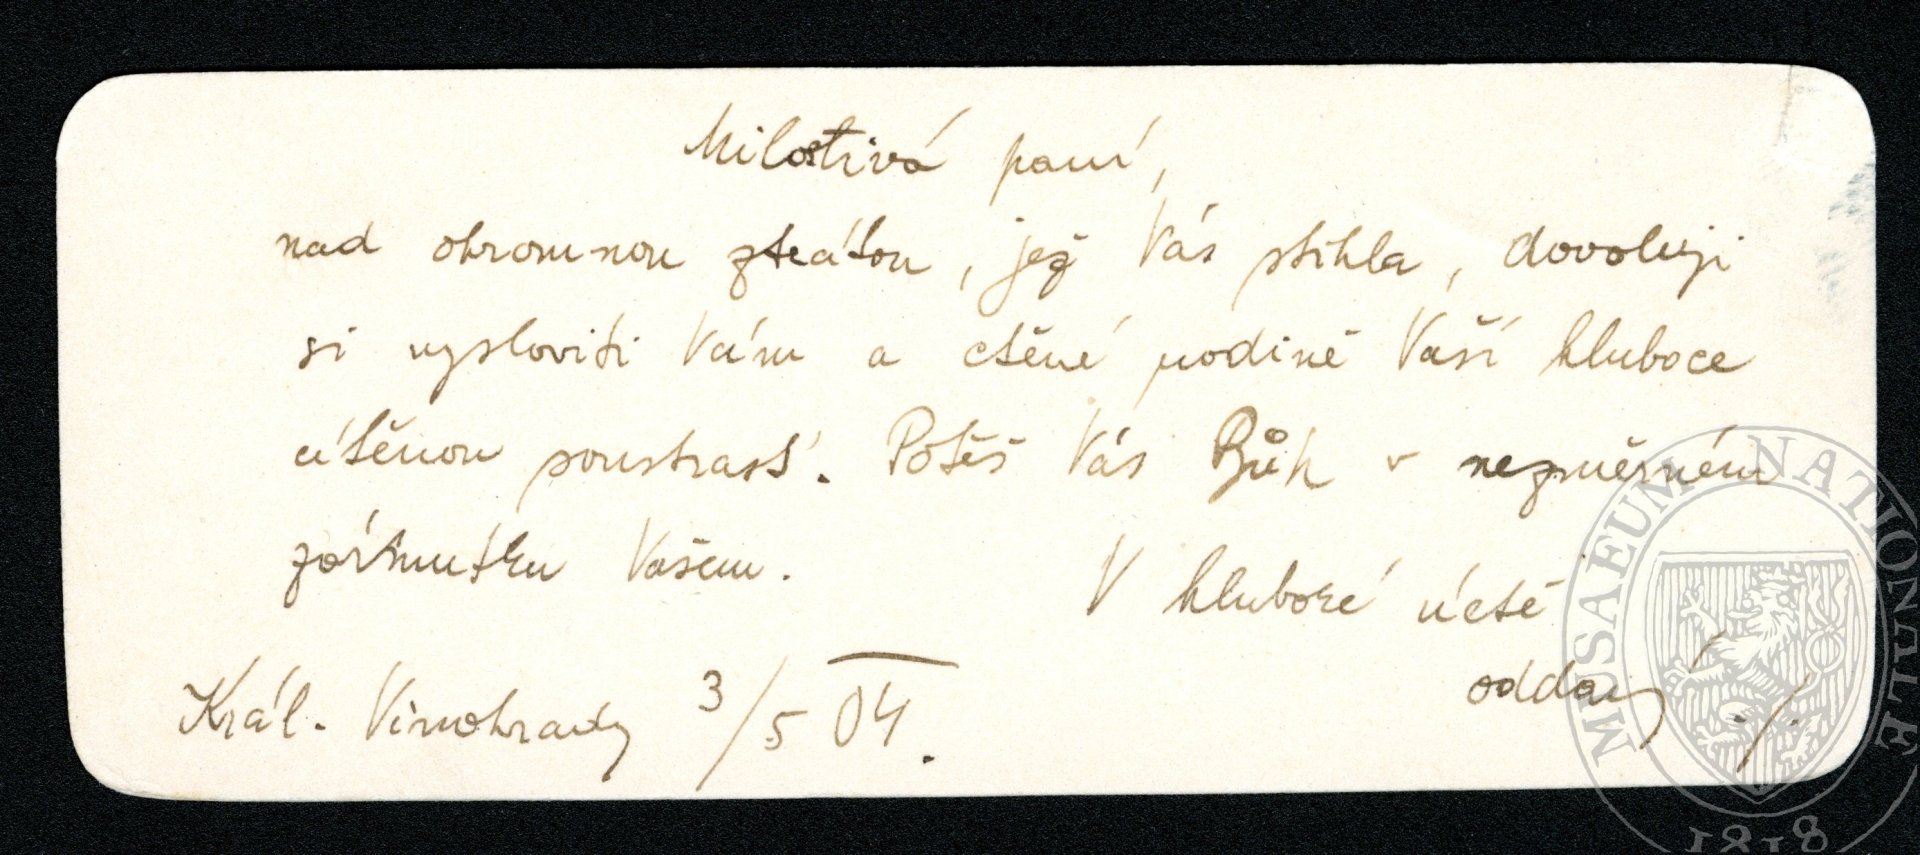 Milostivá paní,
nad ohromnou ztrátou, jež Vás stihla, dovoluji
si vysloviti Vám a ctěné rodině Vaší hluboce
cítěnou soustrasť. Potěš Vás Bůh v nezměrném
zármutku Vašem.
V hluboké úctě
oddaný ./.
Král. Vinohrady 3/5 04.
MUSAEUM NATIONALE
1818